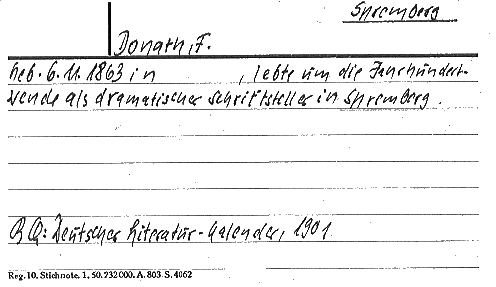 Spremberg
Donath, F.
geb. 6. 11. 1863 in , lebte um die Jahrhundert-
wende als dramatischer Schriftsteller in Spremberg.
BQ: Deutscher Literatur-Kalender, 1901
Reg. 10. Stichnote. 1, 50. 232 000. A. 803 S. 4062